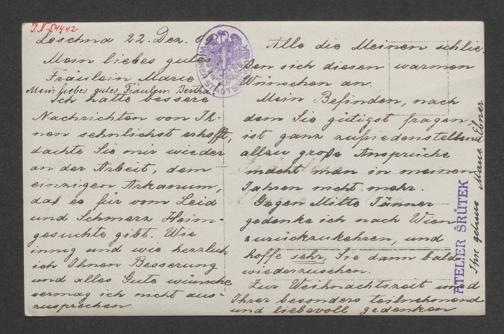 I.N-54442
Loschna 22. Dez. 09
Mein liebes gutes
Fräulein Marie
Mein liebes gutes Fräulein Bertha
Ich hatte bessere
Nachrichten von Ih-
nen sehnlichst erhofft,
dachte Sie mir wieder
an der Arbeit, dem
einzigen Arkanum,
das es für vom Leid
und Schmerz Heim-
gesuchte gibt. Wie
innig und wie herzlich
ich Ihnen Besserung
und alles Gute wünsche
vermag ich nicht aus-
zusprechen
Alle die Meinen schlie-
ßen sich diesen warmen
Wünschen an.
Mein Befinden, nach
dem Sie gütigst fragen
ist ganz zufriedenstellend
allzu große Ansprüche
macht man in meinen
Jahren nicht mehr.
Gegen Mitte Jänner
gedenke ich nach Wien
zurückzukehren, und
hoffe sehr, Sie dann bald
wiederzusehen.
Zur Weihnachtszeit wird
Ihrer besonders teilnehmend
und liebevoll gedenken
Ihre getreue Marie Ebner
ATELIER ŠRŮTEK